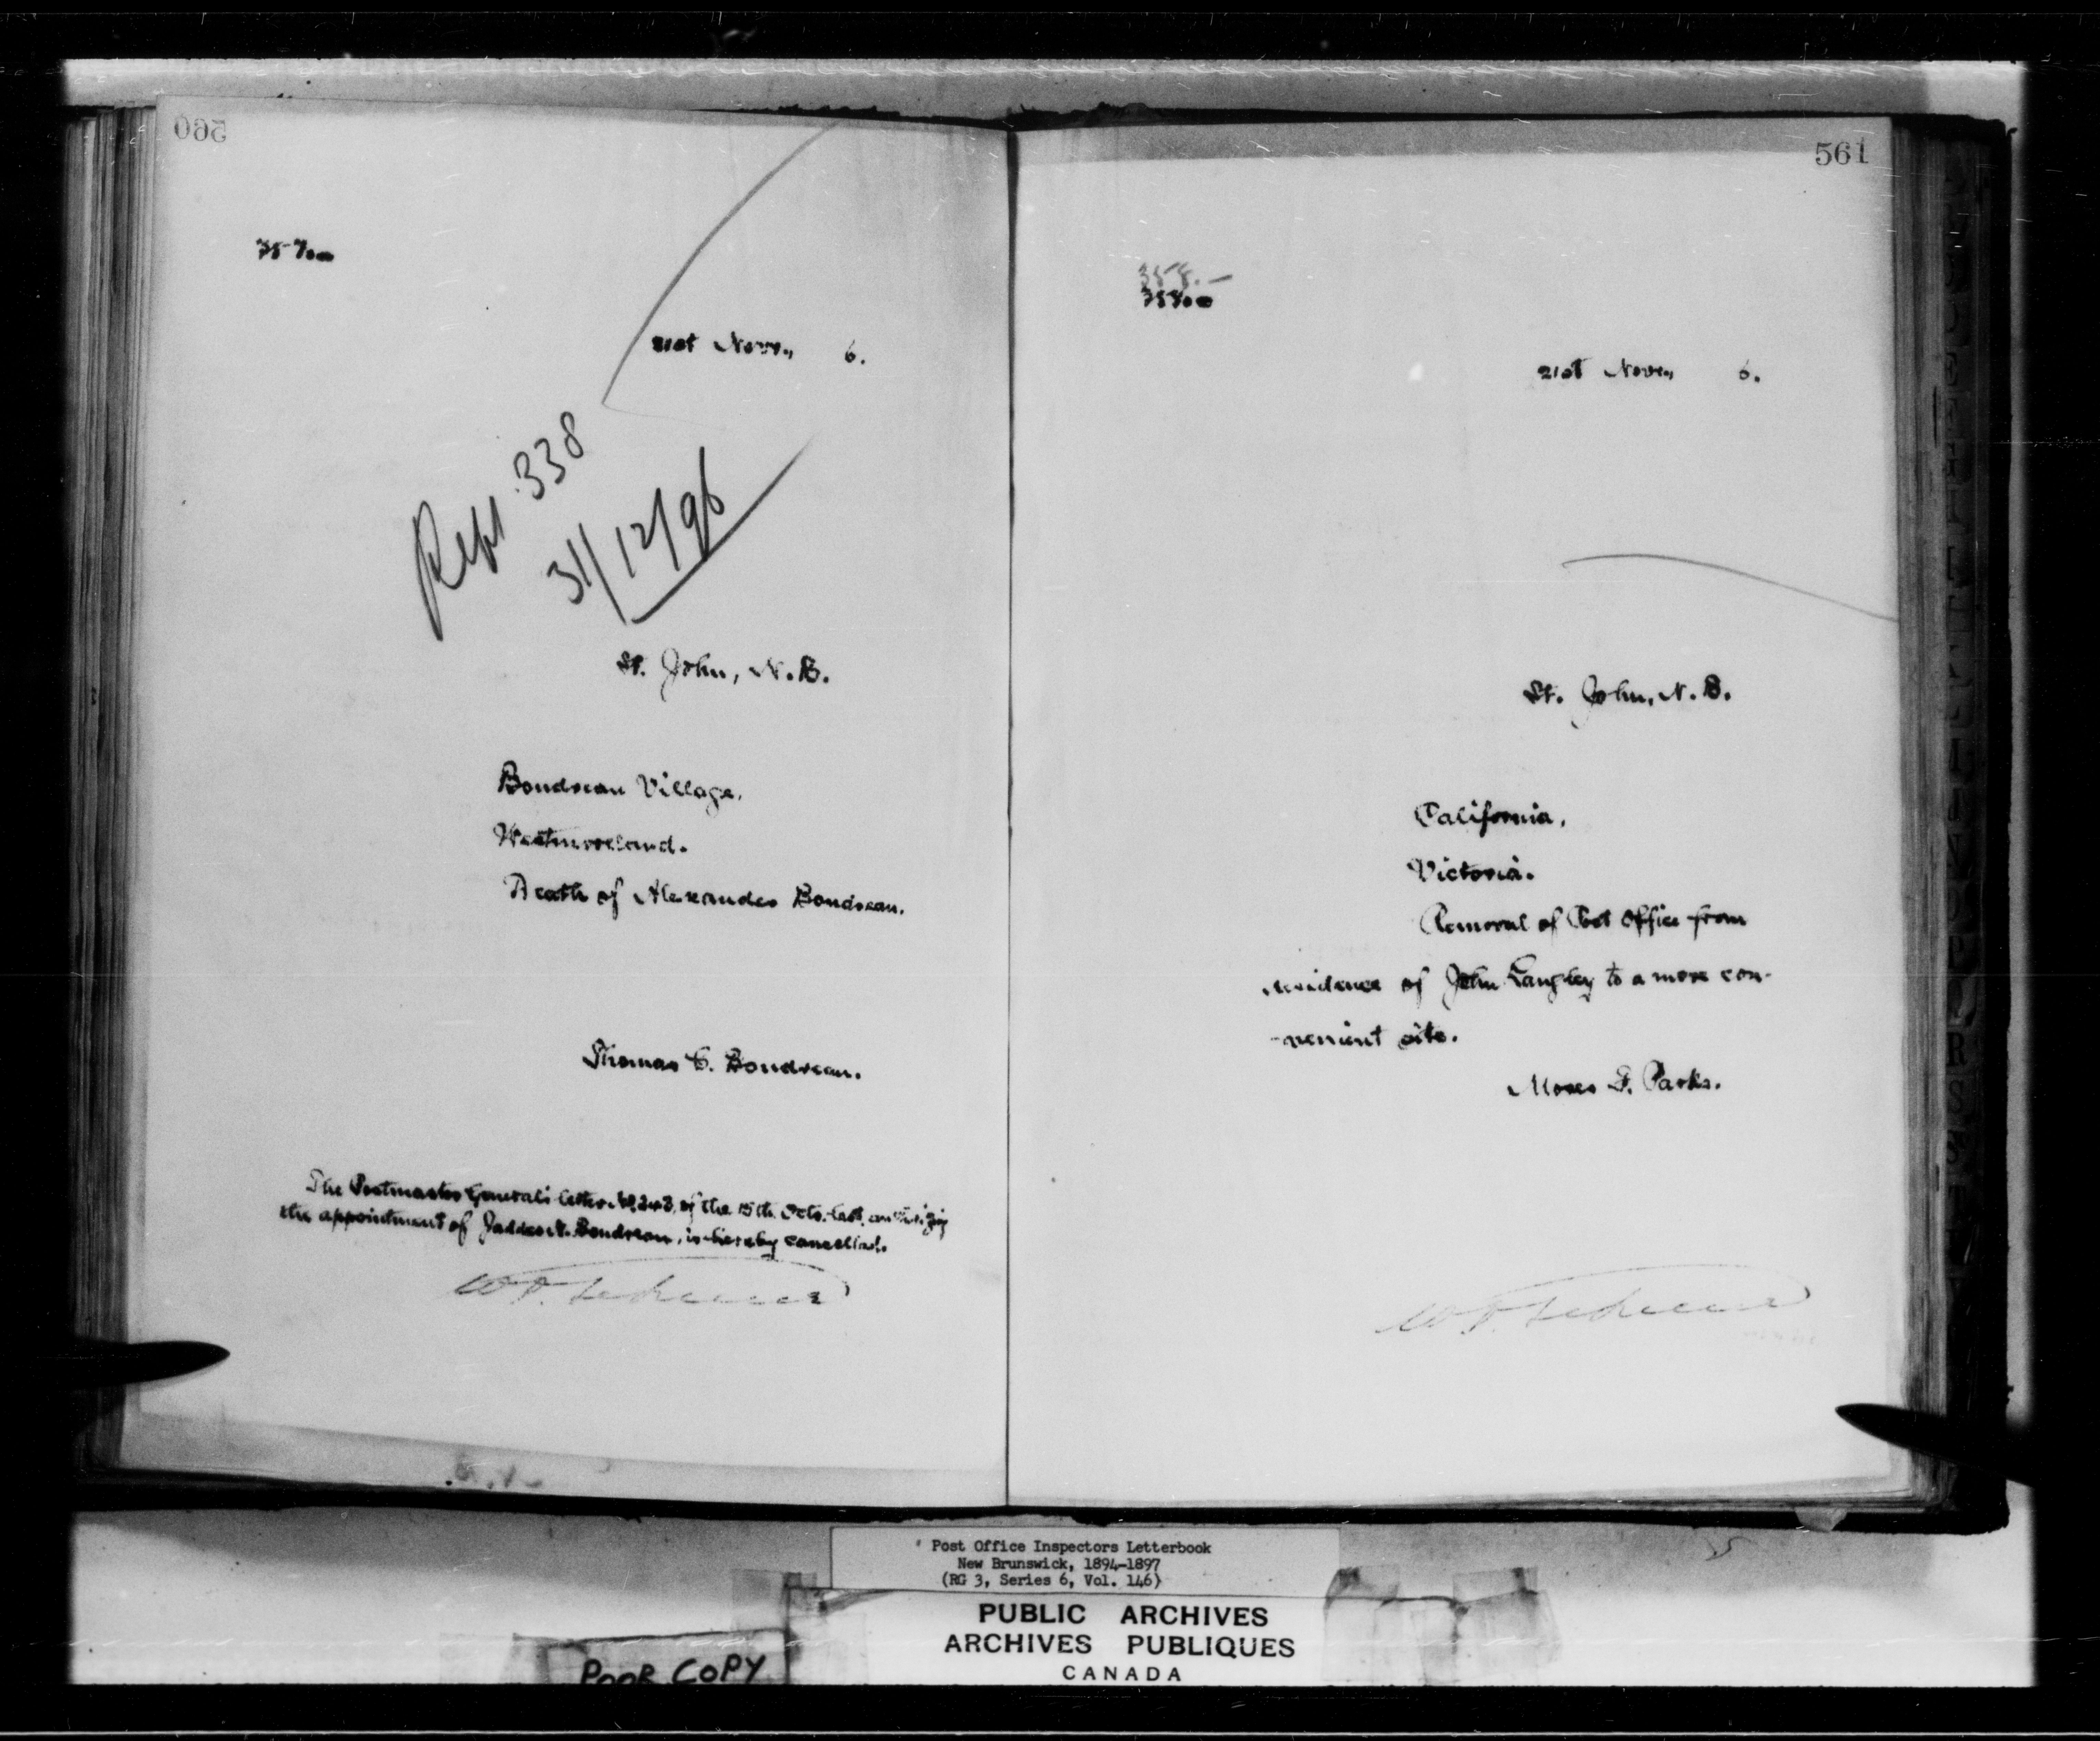 560
21st Novr., 6.
Rept 338
31/12/96
St. John, N.B.
Boudreau Village,
Westmoreland.
Death of Alexander Boudreau.
Thomas C. Boudreau.
The Postmaster General's letter of the 15th Octo. last, authorizing
the appointment of Boudreau, is hereby cancelled.
561
358.—
21st Novr., 6.
St. John, N.B.
California,
Victoria.
Removal of Post Office from
residence of John Langley to a more con-
-venient site.
Moses F. Parks.
Post Office Inspectors Letterbook
New Brunswick, 1894-1897
(RG 3, Series 6, Vol. 146)
PUBLIC ARCHIVES
ARCHIVES PUBLIQUES
CANADA
POOR COPY